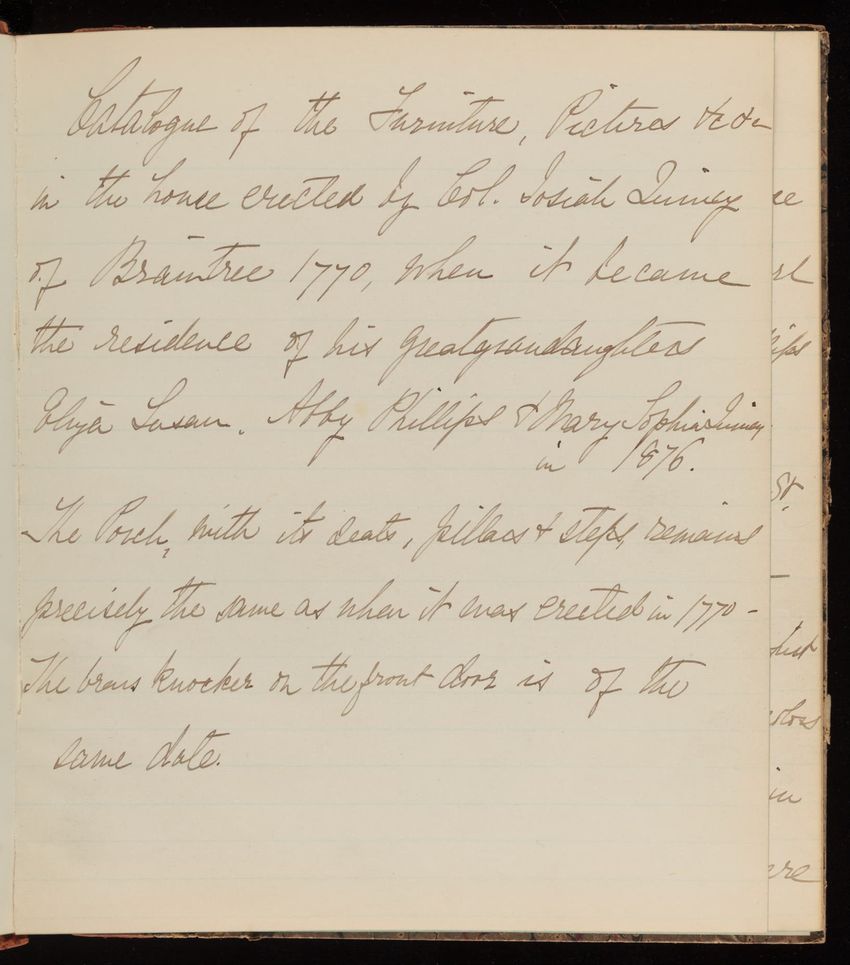 Catalogue of the Furniture, Pictures &c &c
in the house erected by Col. Josiah Quincy
of Braintree 1770, when it became
the residence of his greatgrandaughters
Eliza Susan, Abby Phillips & Mary Sophia Quincy
in 1876.
The Porch, with its seats, pillars & steps, remains
precisely the same as when it was erected in 1770 -
The brass knocker on the front door is of the
same date.